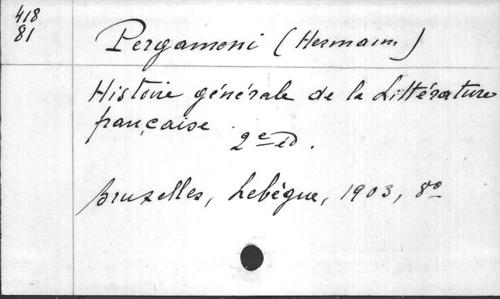 418
81
Pergameni (Hermann)
Histoire générale de la Littérature
française
2e éd.
Bruxelles, Lebègue, 1903, 8o